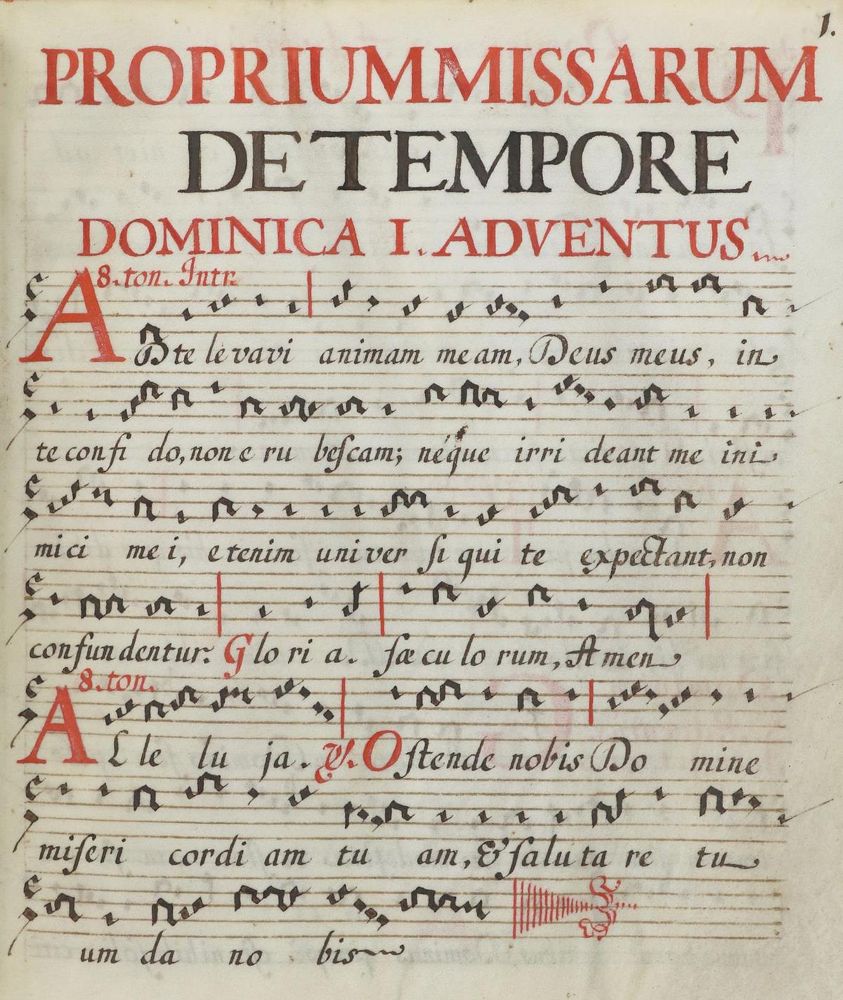 1.
PROPRIUM MISSARUM
DE TEMPORE
DOMINICA I. ADVENTUS.
8. ton. Intr.
AD te levavi animam meam, Deus meus, in
te confi do, non e ru beſcam; néque irri deant me ini
mi ci me i, etenim univer ſi qui te expectant, non
confundentur. Glo ri a. ſæ cu lo rum, Amen
8. ton.
AL le lu ja. ℣. Oſtende nobis Do mine
miſeri cordi am tu am, & ſalu ta re tu
um da no bis